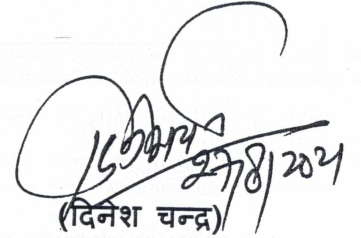 27/8/2021
(दिनेश चन्द्र)